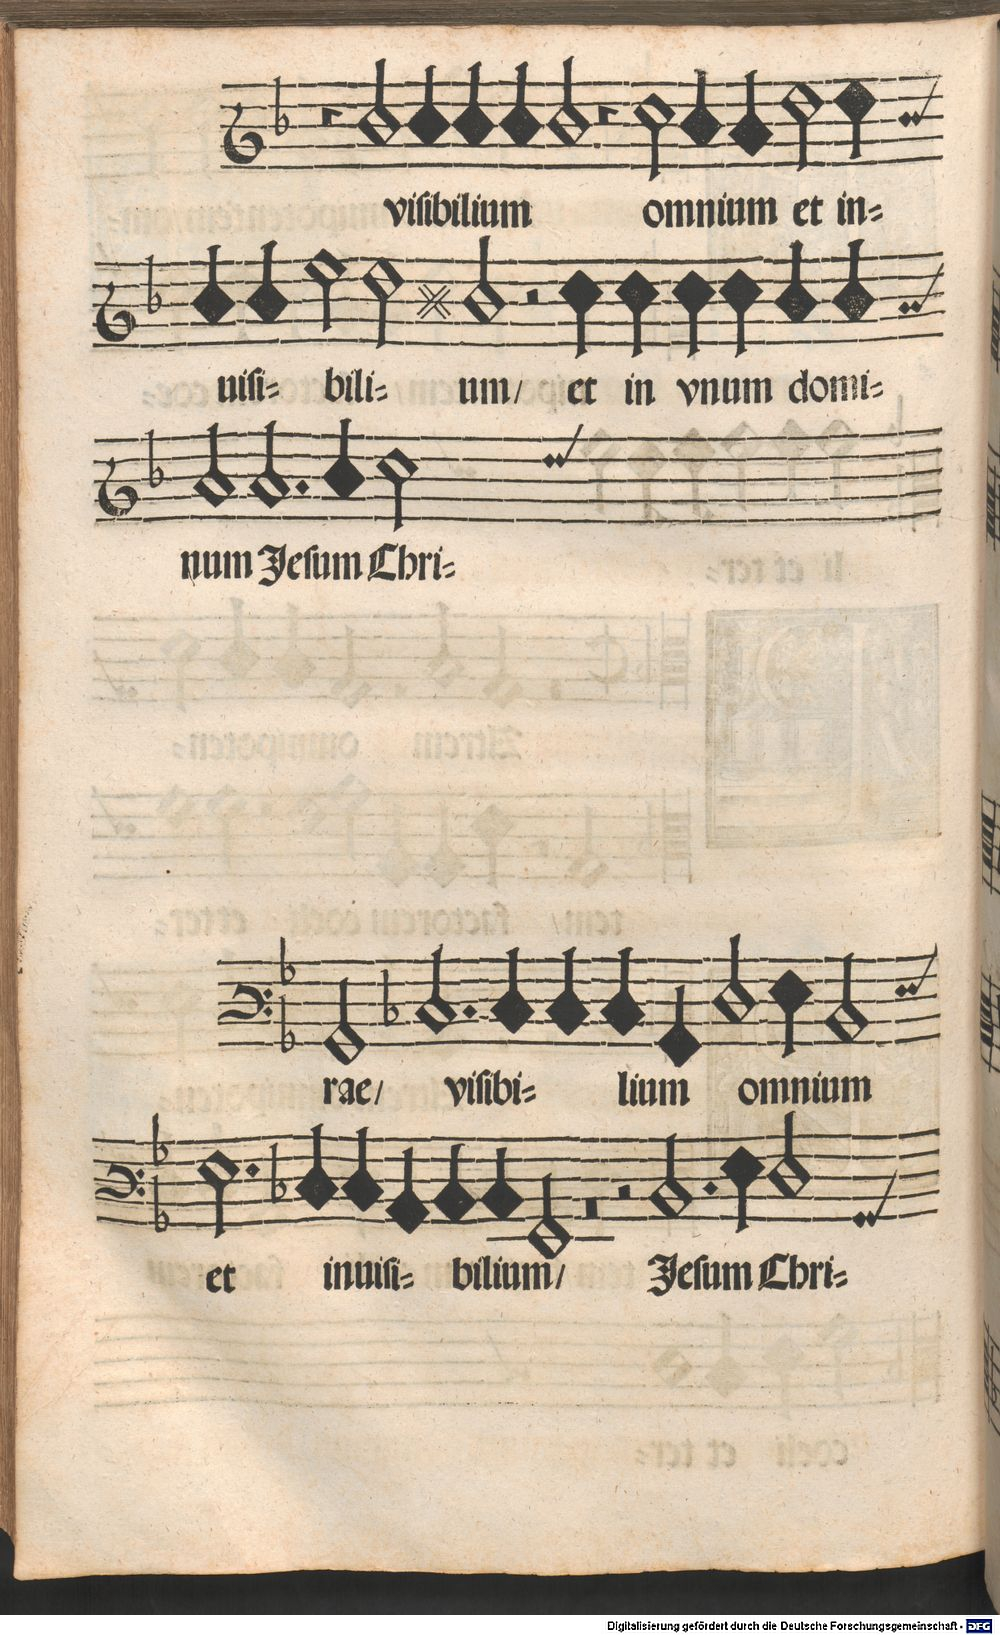 visibilium omnium et in=
uisi= bili= um/ et in vnum domi=
num Jesum Chri=
rae/ visibi= lium omnium
et inuisi= bilium/ Jesum Chri=
Digitalisierung gefördert durch die Deutsche Forschungsgemeinschaft - DFG